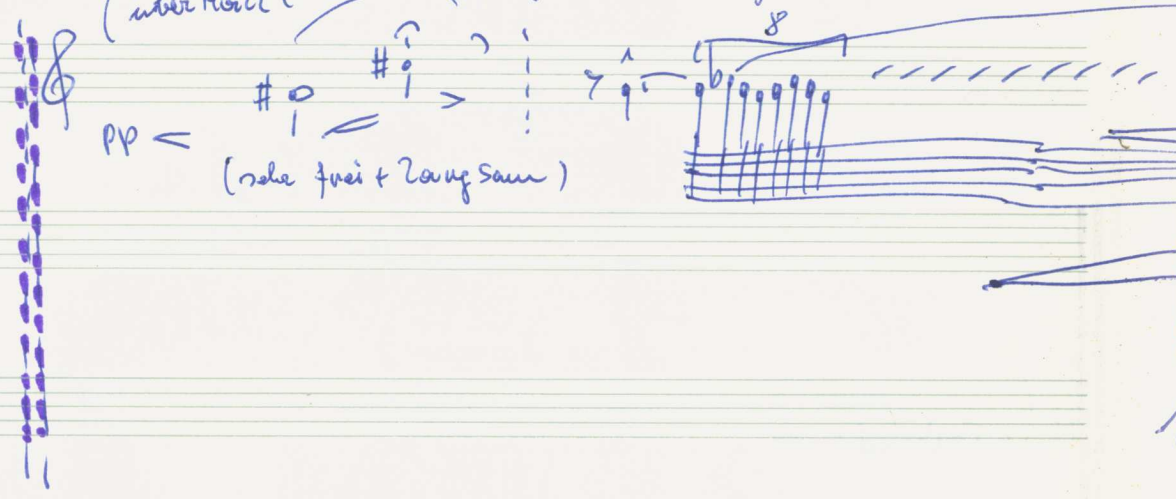 8
pp
(sehr frei + Langsam)